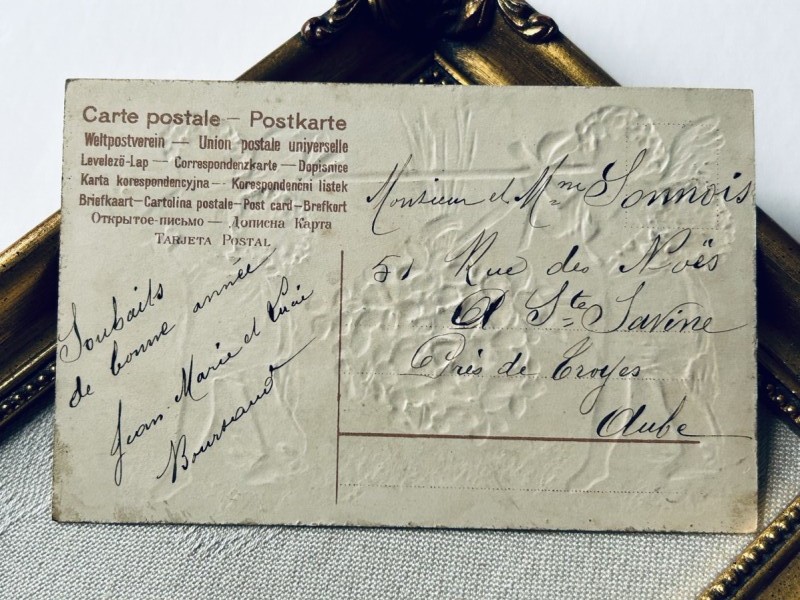 Carte postale – Postkarte
Weltpostverein — Union postale universelle
Levelező-Lap — Correspondenzkarte — Dopisnice
Karta korespondencyjna - Korespondenčni listek
Briefkaart—Cartolina postale-Post card—Brefkort
Открытое-письмо — Дописна Карта
Tarjeta Postal
Souhaits
de bonne année
Jean Marie et Lucie
Monsieur et Mme Sonnois
51 Rue des Noës
A Ste Savine
Près de Troyes
Aube